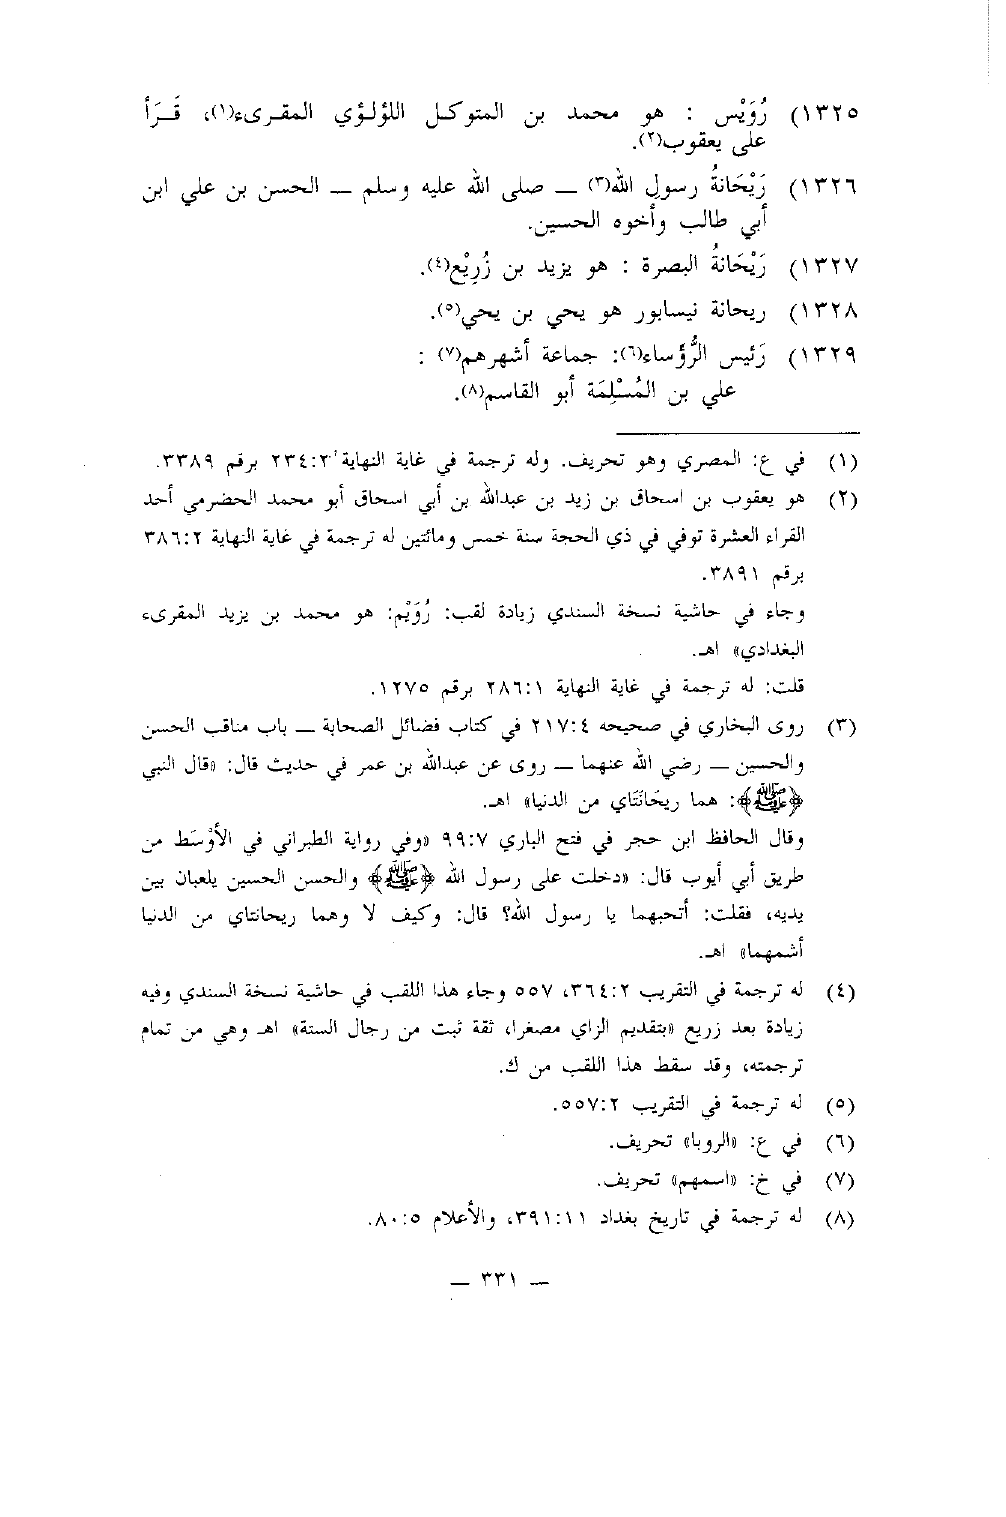 ١٣٢٥) رُوَيْس : هو محمد بن المتوكل اللؤلؤي المقرىء(١)، قَرَأ
على يعقوب(٢).
١٣٢٦) رَيْحَانةُ رسولِ الله(٣) ــ صلى الله عليه وسلم ــ الحسن بن علي ابن
أبي طالب وأخوه الحسين.
١٣٢٧) رَيْحَانةُ البصرة : هو يزيد بن زُرِيْع(٤).
١٣٢٨) ريحانة نيسابور هو يحي بن يحي(٥).
١٣٢٩) رَئيس الرُّؤَساء(٦): جماعة أشهرهم(٧) :
علي بن المُسْلِمَة أبو القاسم(٨).
(١) في ع: المصري وهو تحريف. وله ترجمة في غاية النهاية ٢٣٤:٢ برقم ٣٣٨٩.
(٢) هو يعقوب بن اسحاق بن زيد بن عبدالله بن أبي اسحاق أبو محمد الحضرمي أحد
القراء العشرة توفي في ذي الحجة سنة خمس ومائتين له ترجمة في غاية النهاية ٣٨٦:٢
برقم ٣٨٩١.
وجاء في حاشية نسخة السندي زيادة لقب: رُوَيْم: هو محمد بن يزيد المقرىء
البغدادي» اهـ.
قلت: له ترجمة في غاية النهاية ٢٨٦:١ برقم ١٢٧٥.
(٣) روى البخاري في صحيحه ٢١٧:٤ في كتاب فضائل الصحابة ــ باب مناقب الحسن
والحسين ــ رضي الله عنهما ــ روى عن عبدالله بن عمر في حديث قال: «قال النبي
﴿ﷺ﴾: هما ريحَانَتَاي من الدنيا» اهـ.
وقال الحافظ ابن حجر في فتح الباري ٩٩:٧ «وفي رواية الطبراني في الأوْسَط من
طريق أبي أيوب قال: «دخلت على رسول الله ﴿ﷺ﴾ والحسن الحسين يلعبان بين
يديه، فقلت: أتحبهما يا رسول الله؟ قال: وكيف لا وهما ريحانتاي من الدنيا
أشمهما» اهـ.
(٤) له ترجمة في التقريب ٣٦٤:٢، ٥٥٧ وجاء هذا اللقب في حاشية نسخة السندي وفيه
زيادة بعد زريع «بتقديم الزاي مصغرا، ثقة ثبت من رجال الستة» اهـ وهي من تمام
ترجمته، وقد سقط هذا اللقب من ك.
(٥) له ترجمة في التقريب ٥٥٧:٢.
(٦) في ع: «الروبا» تحريف.
(٧) في خ: «اسمهم» تحريف.
(٨) له ترجمة في تاريخ بغداد ٣٩١:١١، والأعلام ٨٠:٥.
ــ ٣٣١ ــ